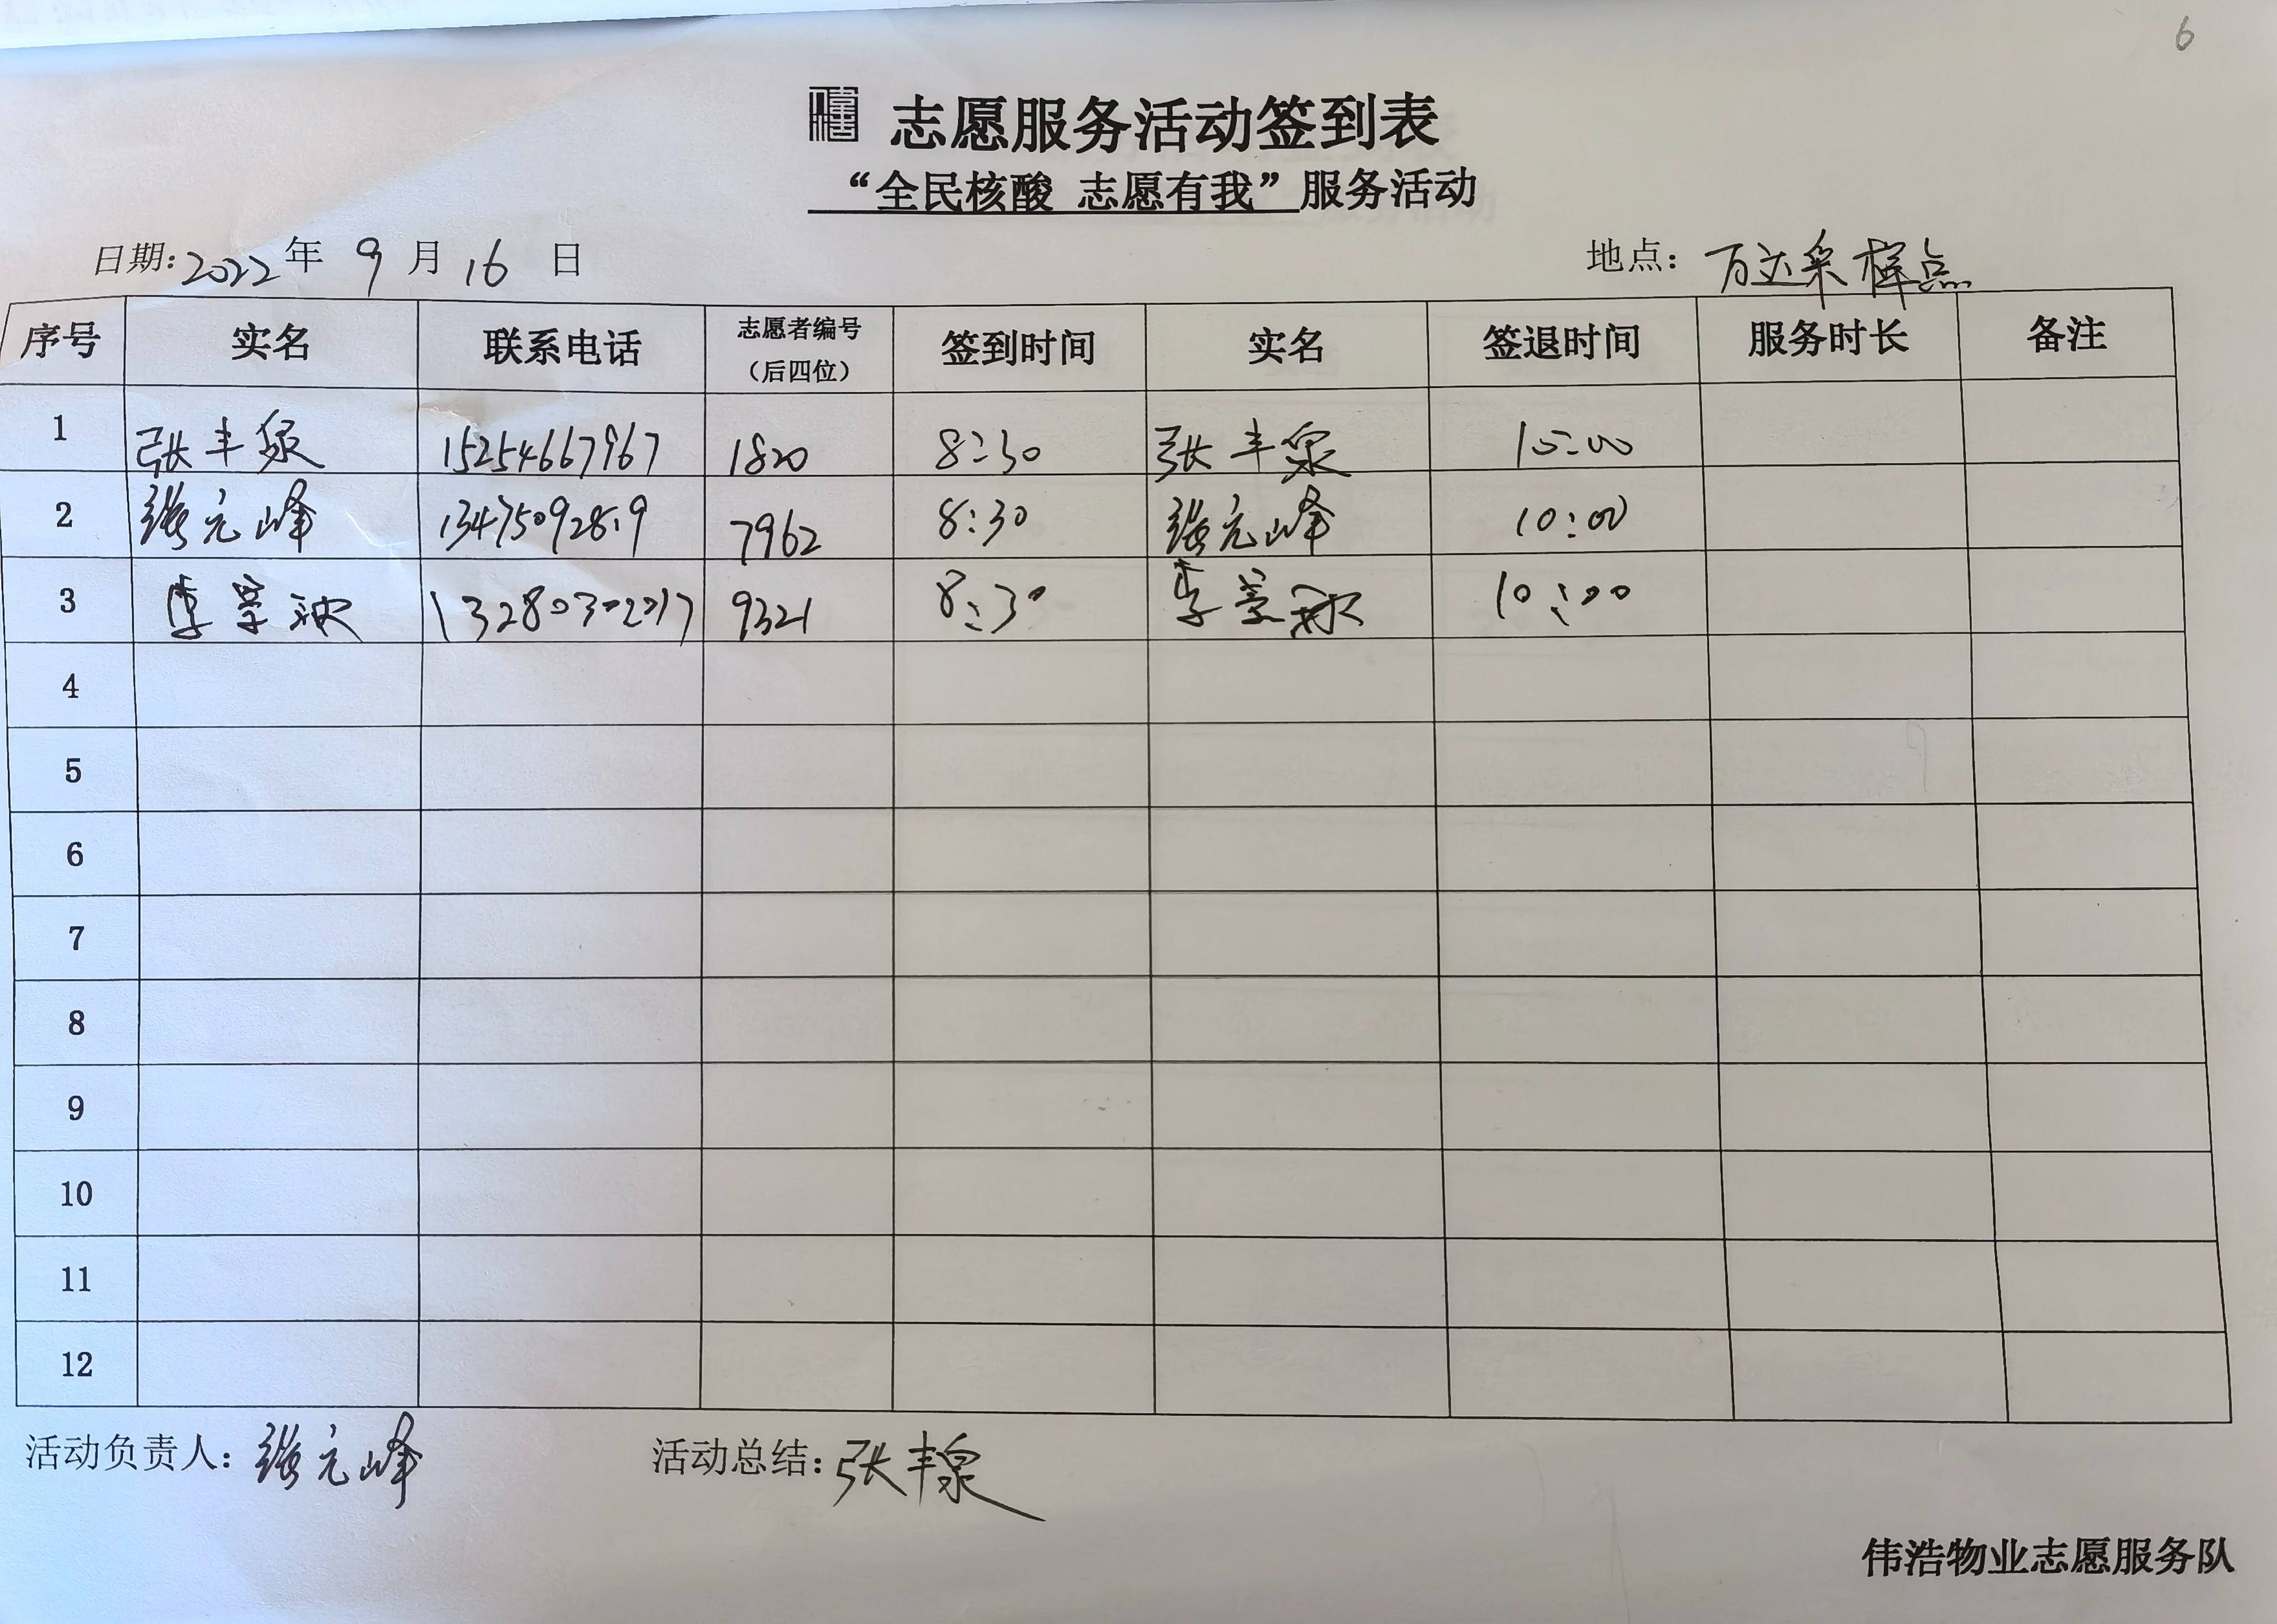 6
志愿服务活动签到表
“全民核酸 志愿有我”服务活动
日期:2022年 9 月 16 日 地点: 万达采样点
序号 实名 联系电话 志愿者编号（后四位） 签到时间 实名 签退时间 服务时长 备注
1 张丰泉 15254667967 1820 8:30 张丰泉 10:00
2 张元峰 13475092819 7962 8:30 张元峰 10:00
3 李 13280302017 9321 8:30 李 10:00
4
5
6
7
8
9
10
11
12
活动负责人: 张元峰 活动总结: 张丰泉
伟浩物业志愿服务队